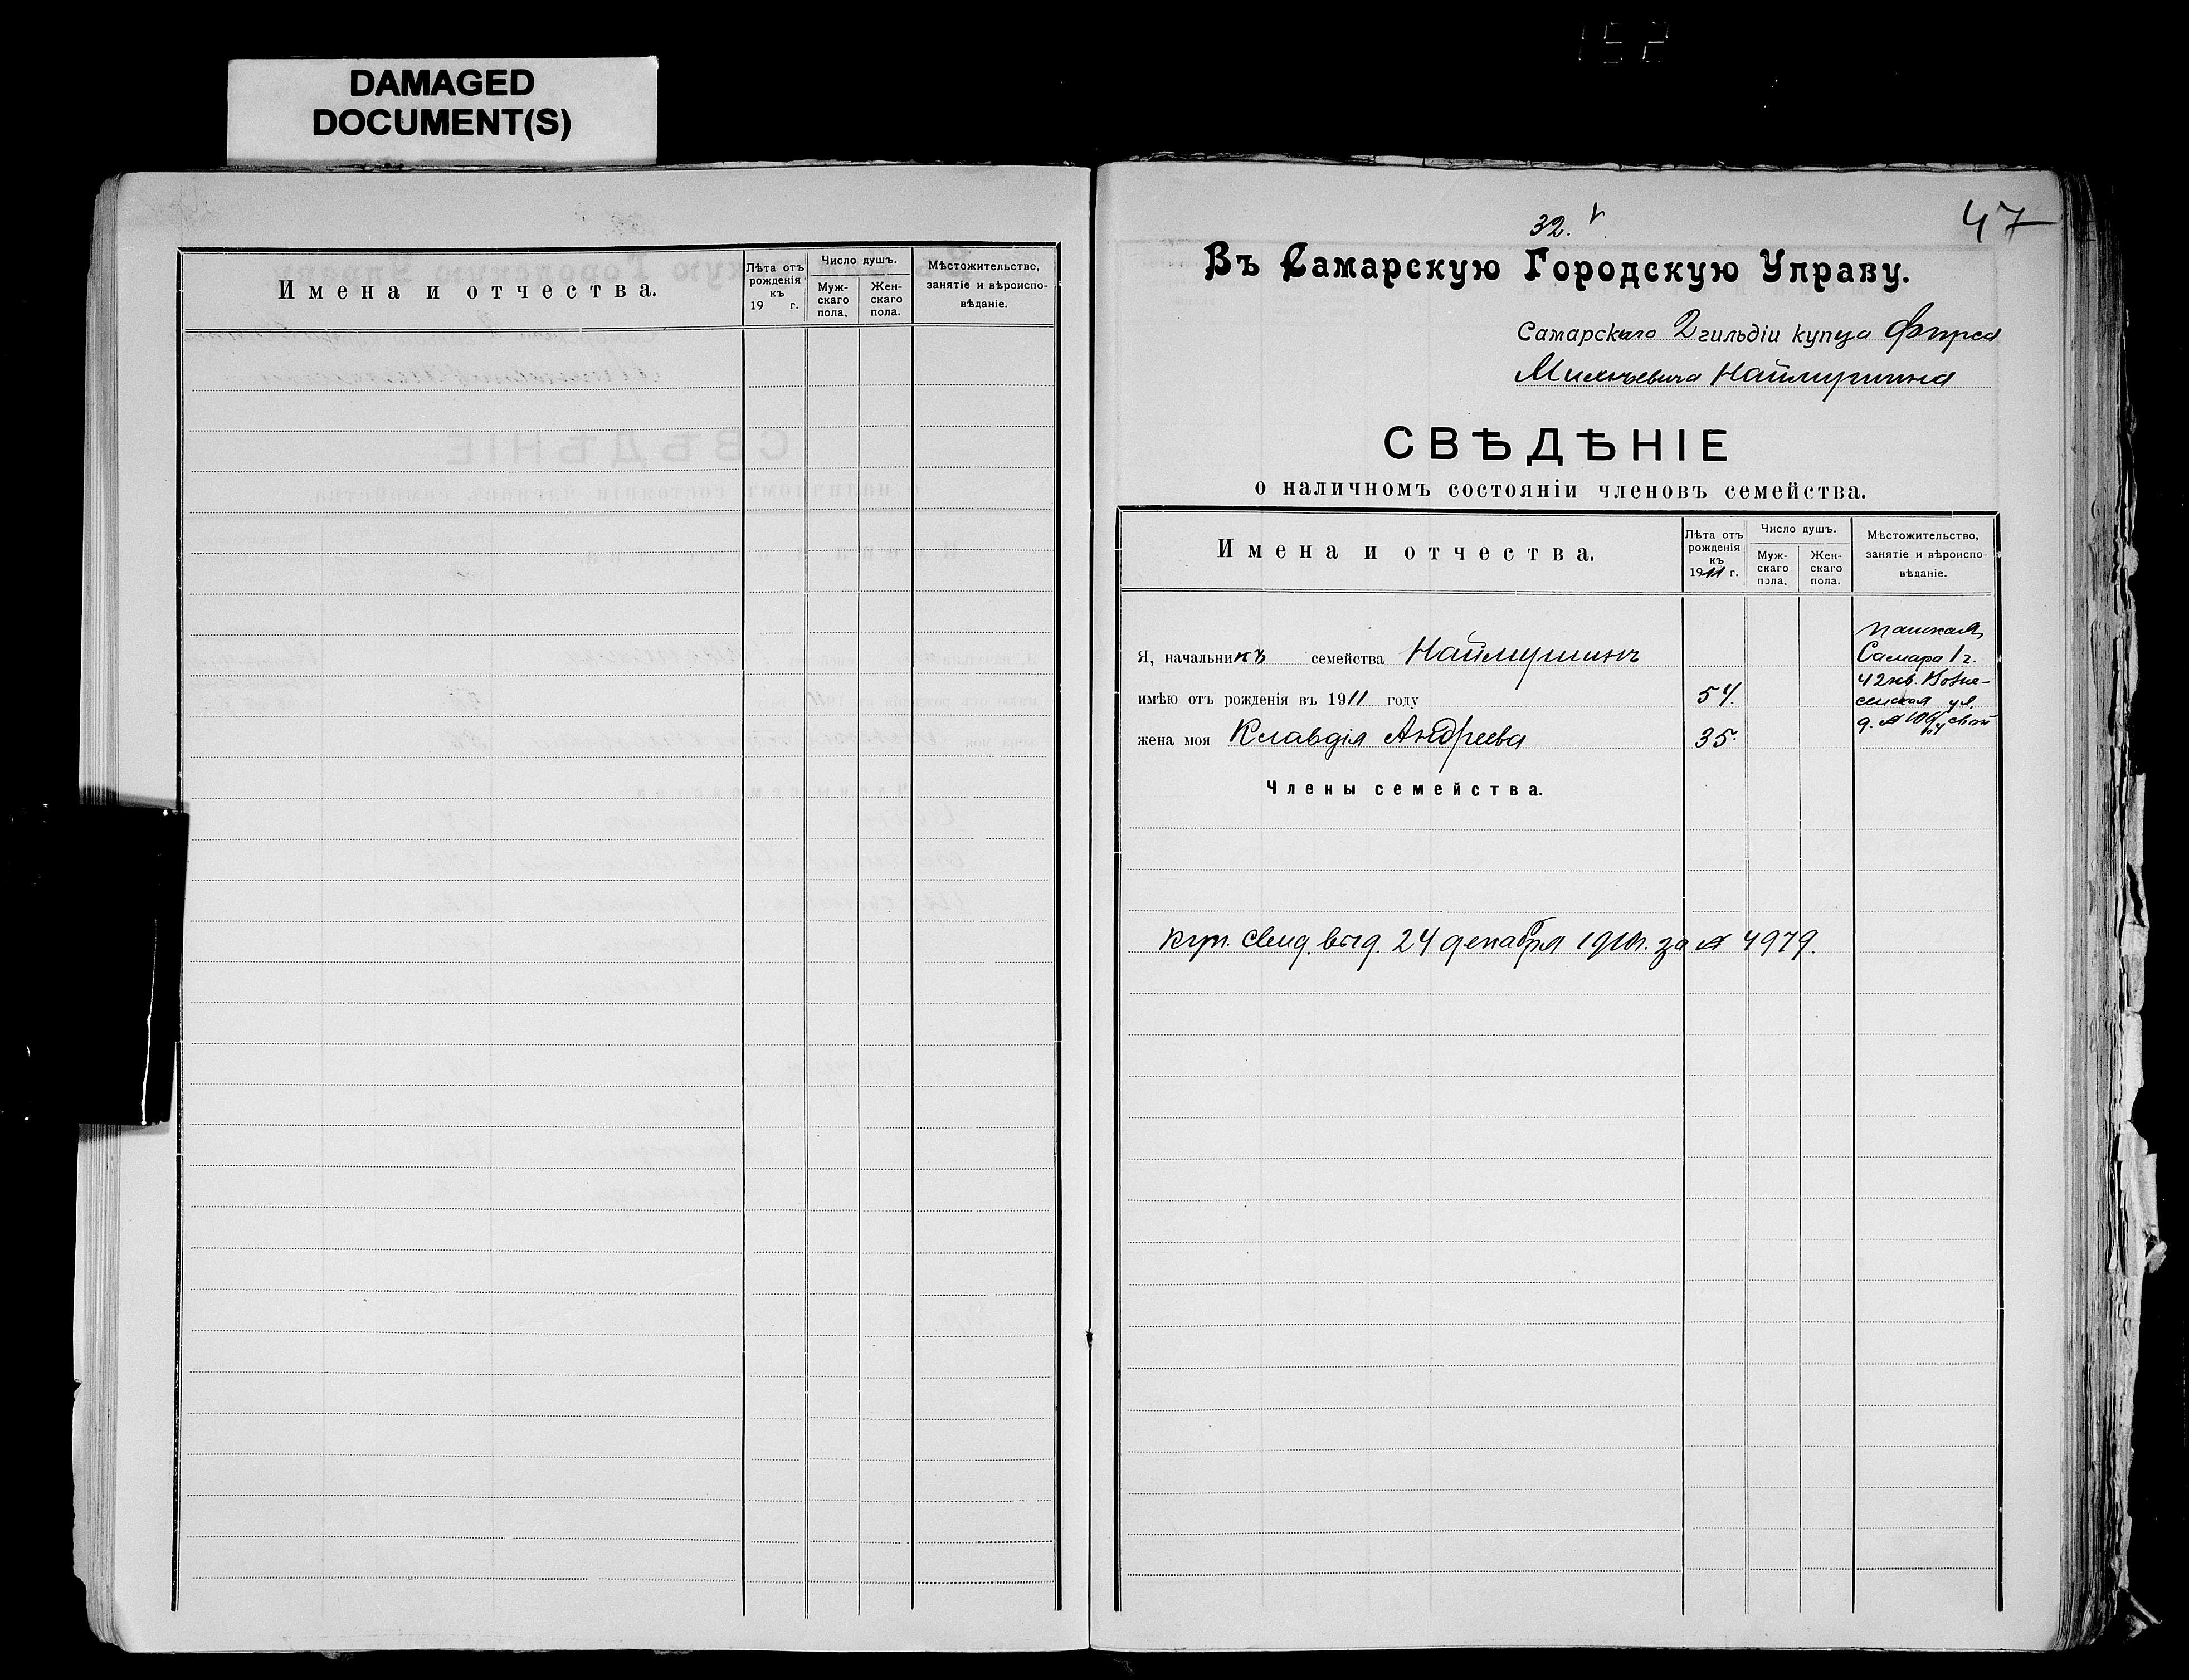 DAMAGED
DOCUMENT(S)
Имена и отчества.
Лѣта отъ рожденія къ 19 г.
Число душъ.
Муж-скаго пола.
Жен-скаго пола.
Мѣстожительство, занятіе и вѣроиспо-вѣданіе.
47
32.
Въ Самарскую Городскую Управу.
Самарскаго 2 гильдіи купца Фирса
Наймушина
СВѢДѢНІЕ
о наличномъ состояніи членовъ семейства.
Имена и отчества.
Лѣта отъ рожденія къ 1911 г.
Число душъ.
Муж-скаго пола.
Жен-скаго пола.
Мѣстожительство, занятіе и вѣроиспо-вѣданіе.
Я, начальникъ семейства Наймушинъ
Самара 1 г.
42 кв. Возне-
имѣю отъ рожденія въ 1911 году 54.
сенская ул.
жена моя Клавдія Андреева 35.
Члены семейства.
куп. свид. выд. 24 декабря за № 4979.